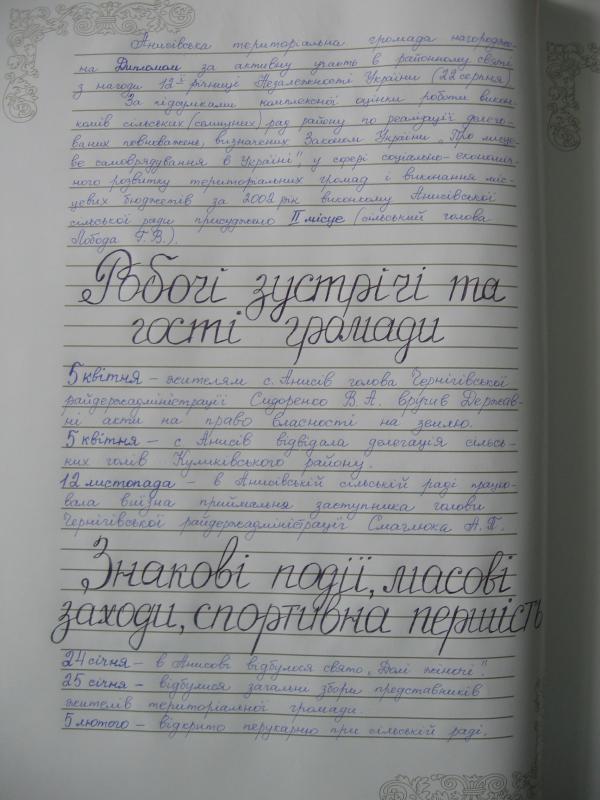 Анисівська територіальна громада нагородже-
на Дипломом за активну участь в районному святі
з нагоди 12-ї річниці Незалежності України (22 серпня)
За підсумками комплексної оцінки роботи викон-
комів сільських (селищних) рад району по реалізації делего-
ваних повноважень, визначених Законом України „Про місце-
ве самоврядування в Україні", у сфері соціально-економіч-
ного розвитку територіальних громад і виконання міс-
цевих бюджетів за 2002 рік виконкому Анисівської
сільської ради присуджено ІІ місце (сільський голова
Лобода Г.В.).
Робочі зустрічі та
гості громади
5 квітня – жителям с. Анисів голова Чернігівської
райдержадміністрації Сидоренко В.А. вручив Держав-
ні акти на право власності на землю.
5 квітня – с. Анисів відвідала делегація сільсь-
ких голів Куликівського району.
12 листопада – в Анисівській сільській раді працю-
вала виїзна приймальня заступника голови
Чернігівської райдержадміністрації Смаглюка А.П.
Знакові події, масові
заходи, спортивна першість
24 січня – в Анисові відбулося свято „Долі жіночі".
25 січня – відбулися загальні збори представників
жителів територіальної громади.
5 лютого – відкрито перукарню при сільській раді.